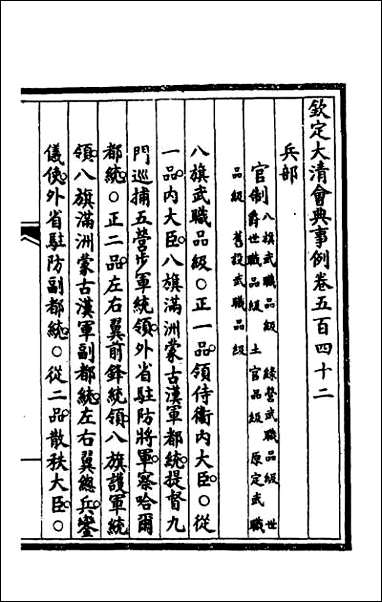 欽定大清會典事例卷五百四十二
兵部
官制八旗武職品級 綠營武職品級 世
爵世職品級 土官品級 原定武職
品級 舊設武職品級
八旗武職品級○正一品領侍衞內大臣○從
一品內大臣八旗滿洲蒙古漢軍都統提督九
門巡捕五營步軍統領外省駐防將軍察哈爾
都統○正二品左右翼前鋒統領八旗護軍統
領八旗滿洲蒙古漢軍副都統左右翼總兵鑾
儀使外省駐防副都統○從二品散秩大臣○